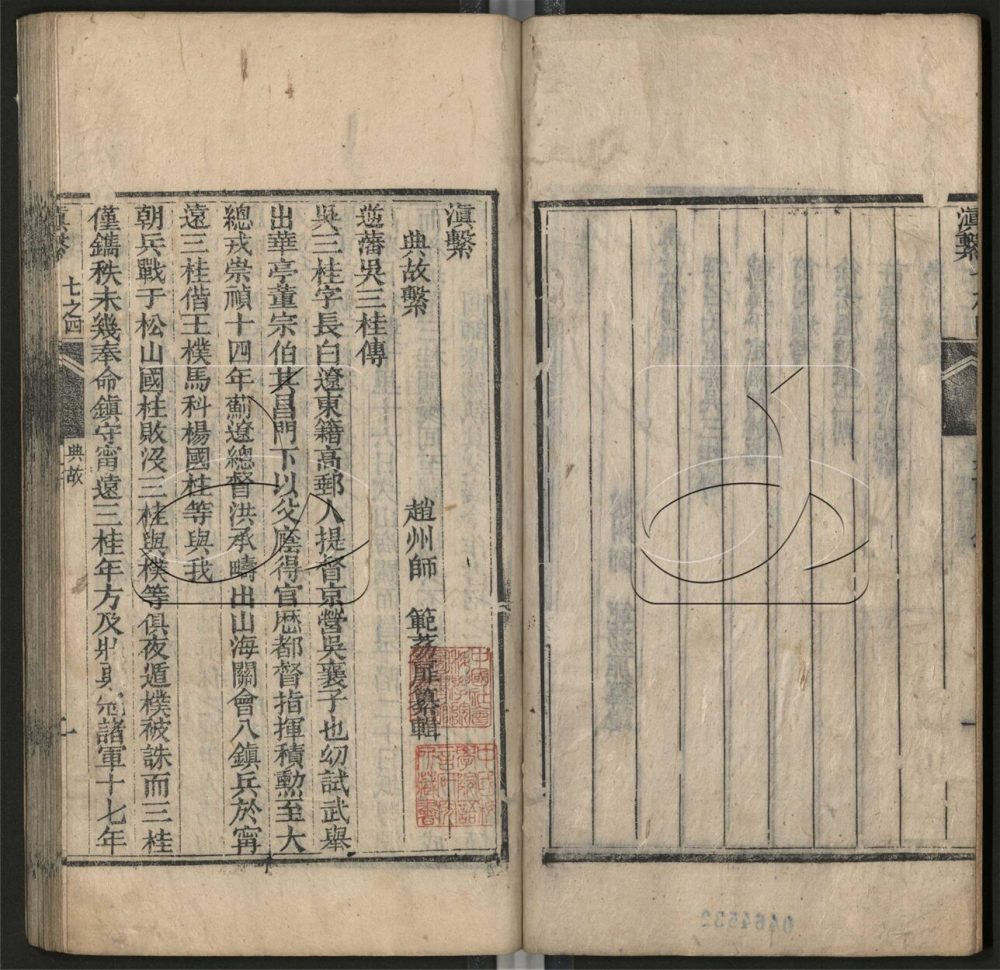 滇繫
滇繫
典故繫
趙州師 範荔扉纂輯
逆藩吳三桂傳
吳三桂字長白遼東籍高郵人提督京營吳襄子也幼試武舉
出華亭董宗伯其昌門下以父廕得官歷都督指揮積勲至大
總戎崇禎十四年薊遼總督洪承疇出山海關會八鎮兵於甯
遠三桂偕王樸馬科楊國柱等與我
朝兵戰于松山國柱敗沒三桂與樸等俱夜遁樸被誅而三桂
僅鐫秩未幾奉命鎮守甯遠三桂年方及壯勇冠諸軍十七年
滇繫
七之四
典故
一
0464532